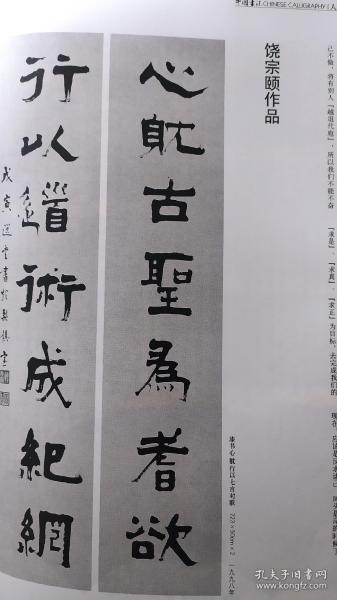 中国书法 CHINESE CALLIGRAPHY | 人
己不做，将有别人「越俎代庖」，所以我们不能不奋
「求是」、「求真」、「求正」为目标，去完成我们的
饶宗颐作品
漆书心躭行以七言对联 223×50cm×2 一九九八年
心躭古聖爲耆欲
行以道術成紀綱
戊寅選堂書於梨俱室
孔夫子旧书网